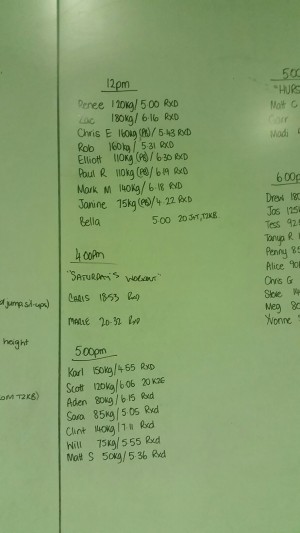 12pm
Renee 120kg/ 5:00 RXD
180kg/ 6:16 RXD
Chris E 160kg (PB)/ 5:43 RXD
Rob 160kg/ 5:31 RXD
Elliott 110kg (PB)/ 6:30 RXD
Paul R 110kg (PB)/ 6:19 RXD
Mark M 140kg/ 6:18 RXD
Janine 75kg (PB)/ 4:22 RXD
Bella 5:00
4:00pm
"SATURDAY'S WORKOUT"
CARIS 18:53 RXD
MARIE 20:32 RXD
5:00pm
Karl 150kg/ 4:55 RXD
Scott 120kg/ 6:06 20 K2E
Aden 80kg/ 6:15 Rxd
Sara 85kg/ 5:05 Rxd
Clint 140kg/ 7:11 Rxd
Will 75kg/ 5:55 Rxd
Matt S 50kg/ 5:36 Rxd
of jump sit-ups)
height
5:00
Matt C
Madi
6:00p
Drew 180
Jas 125
Tess 92
Tanya R
Penny 85
Alice 90
Chris G
Steve 14
Meg 80
Yvonne